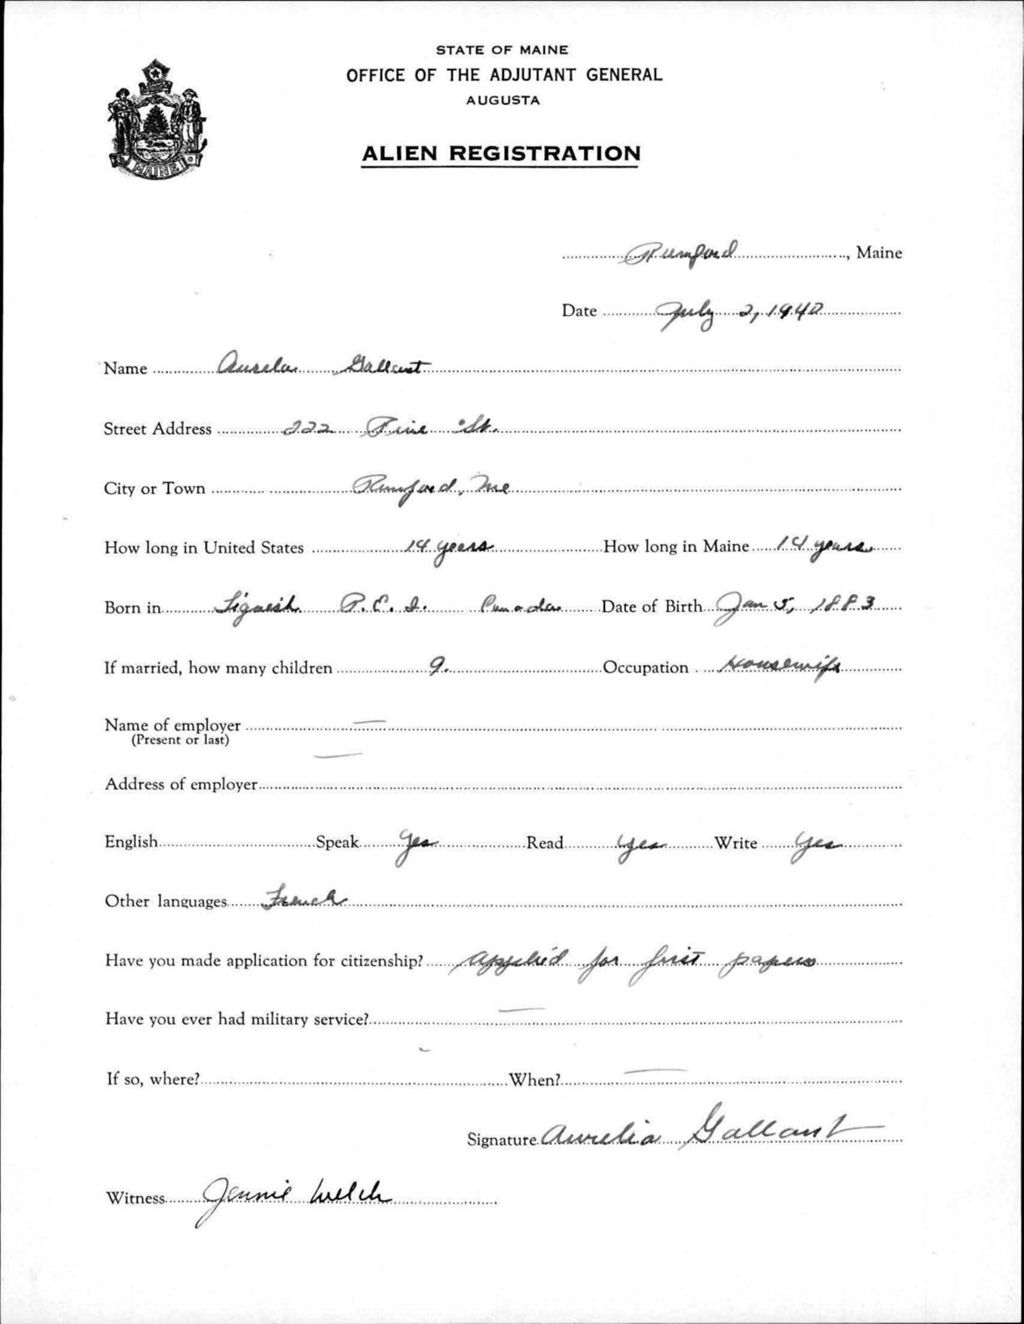 STATE OF MAINE
OFFICE OF THE ADJUTANT GENERAL
AUGUSTA
ALIEN REGISTRATION
MAINE
Rumford, Maine
Date July 2, 1940
Name Aurelia Gallant
Street Address 222 Pine St.
City or Town Rumford, Me
How long in United States 14 years How long in Maine 14 years
Born in P. E. I. Canada Date of Birth Jan 5, 1883
If married, how many children 9. Occupation Housewife
Name of employer —
(Present or last)
Address of employer —
English Speak Yes Read Yes Write Yes
Other languages French
Have you made application for citizenship? Applied for first papers
Have you ever had military service? —
If so, where? — When? —
Signature Aurelia Gallant
Witness Jennie Welch